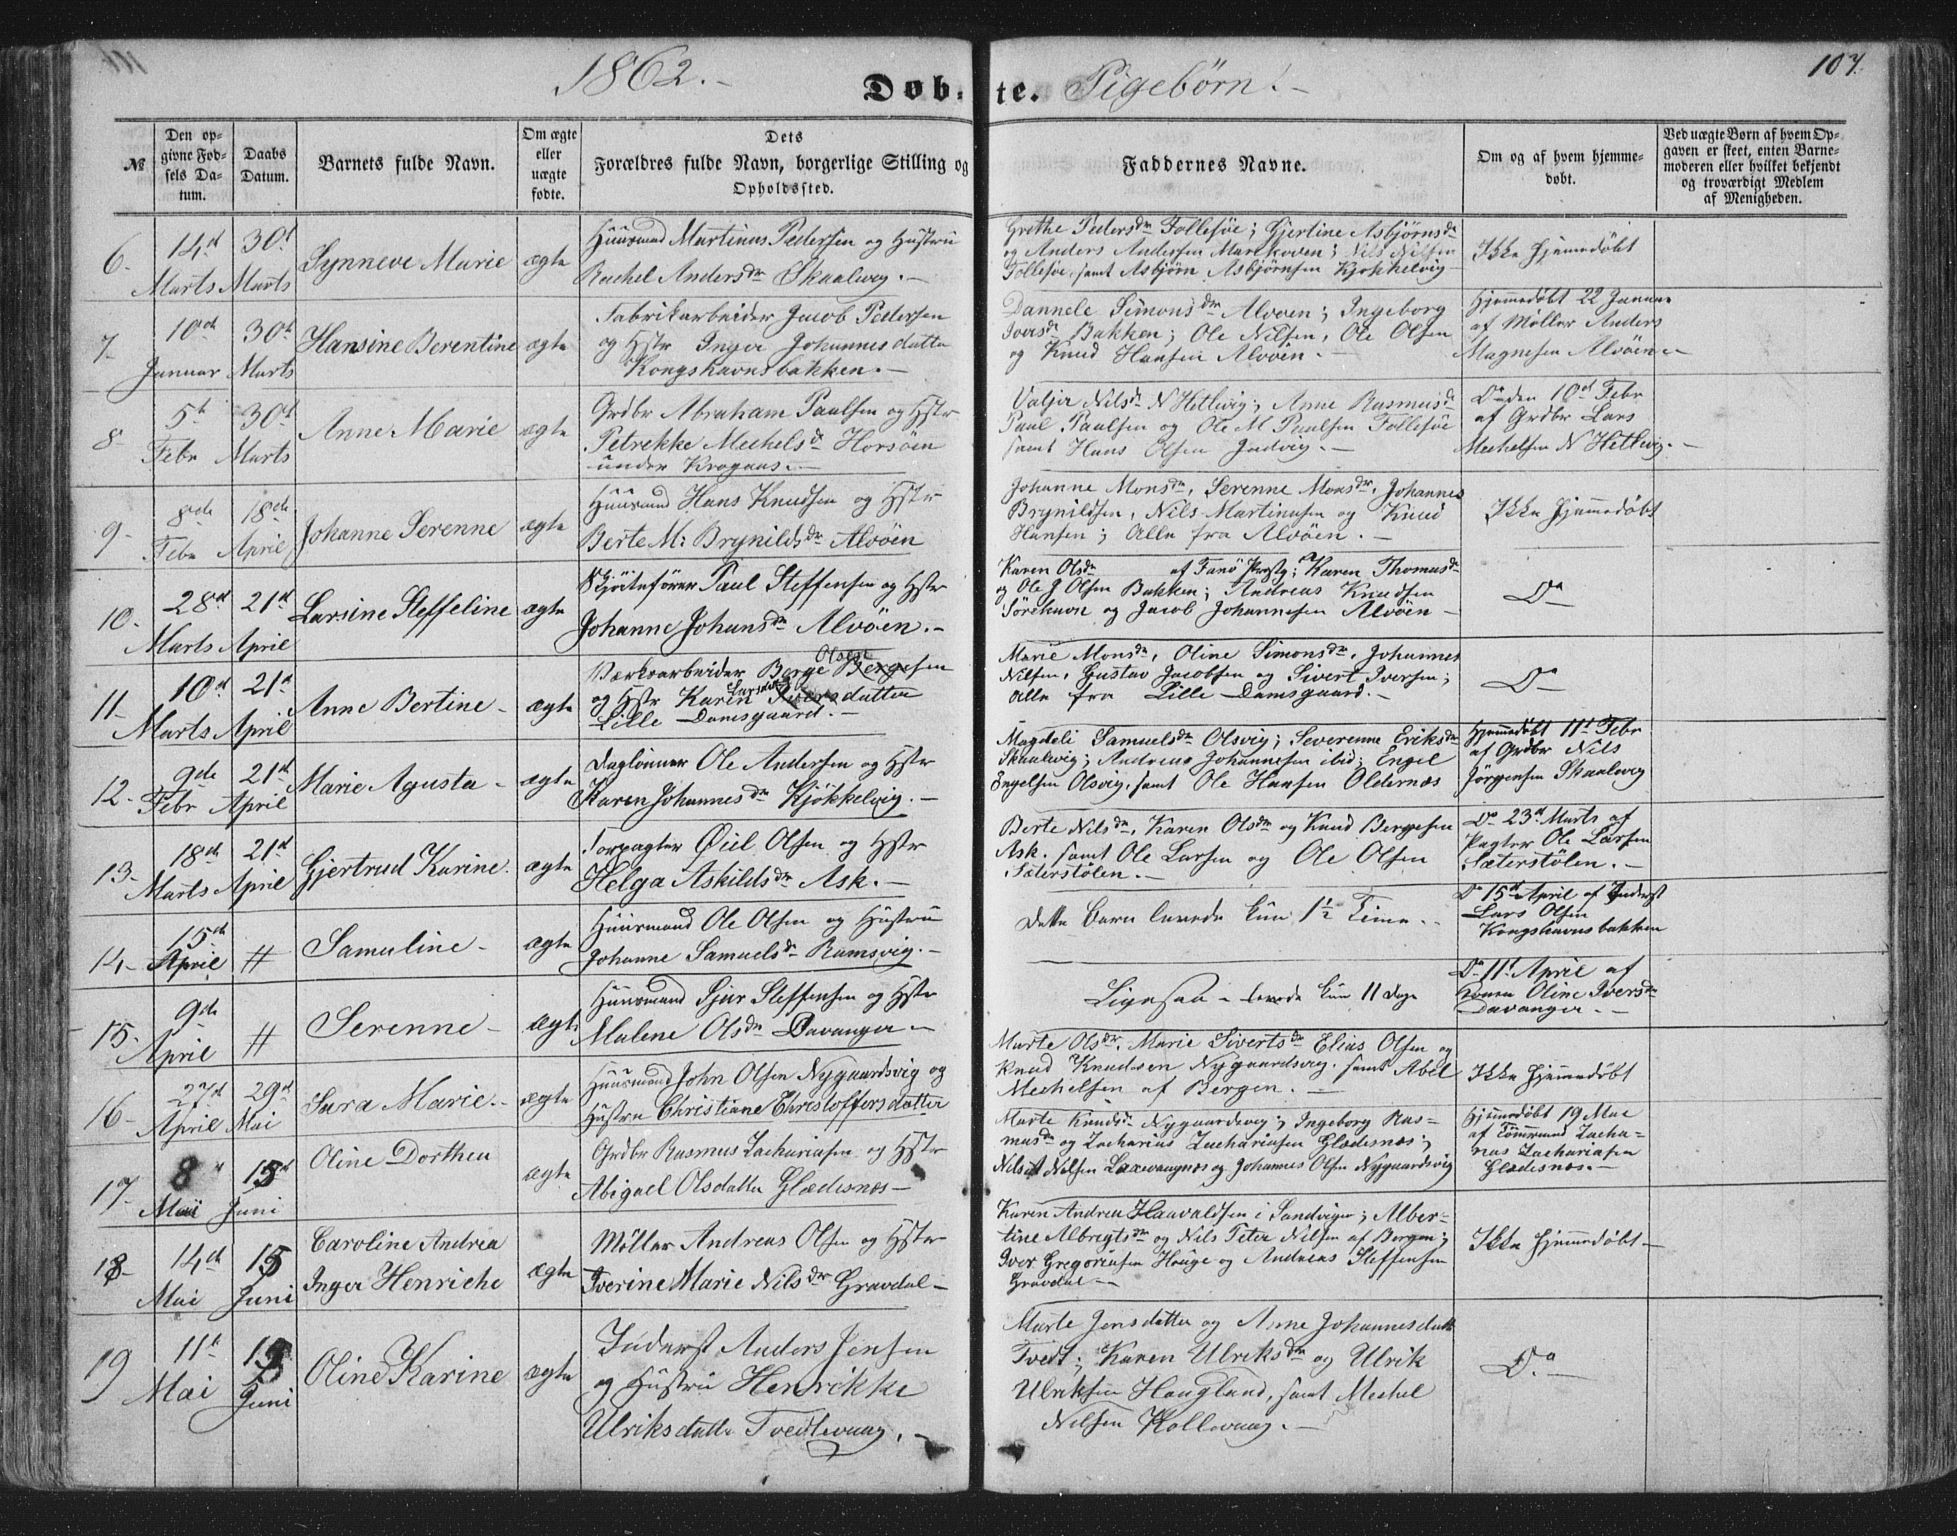 1862.-
Døb-te. Pigebørn!-
107.
№
Den op-
givne Fød-
sels Da-
tum.
Daabs
Datum.
Barnets fulde Navn.
Om ægte
eller
uægte
fødte.
Dets
Forældres fulde Navn, borgerlige Stilling og
Opholdssted.
Faddernes Navne.
Om og af hvem hjemme-
døbt.
Ved uægte Børn af hvem Op-
gaven er skeet, enten Barne-
moderen eller hvilket bekjendt
og troværdigt Medlem
af Menigheden.
6.
14d
Marts
30t
Marts
Synneve Marie
ægte
Huusmand Martinus Pedersen og Hustru
Rachel Andersdr Skaalvig.-
Grethe Pedersdr Follesøe; Gjertine Asbjørnsdr
og Anders Andersen Marikoven; Nils Nilsen
Follesøe, samt Asbjørn Asbjørnsen Kjøkkelvig
Ikke hjemmedøbt
7-
10de
Januar
30t
Marts
Hansine Berentine
ægte
Fabrikarbeider Jacob Pedersen
og Hstr Inger Johannesdatter
Kongshavnsbakken.-
Dannele Simonsdr Alvøen; Ingeborg
Iversdr Bakken; Ole Nilsen, Ole Olsen
og Knud Hansen Alvøen.-
Hjemmedøbt 22 Januar
af Møller Anders
Magnesen Alvøen.-
8-
5t
Febr
30d
Marts
Anne Marie
ægte
Grdbr Abraham Paulsen og Hstr
Petrekke Mechelsdr Horsøen
under Krogaas.-
Valjer Nilsdr N Hetlevig; Anne Rasmusdr
Paul Paulsen og Ole M Paulsen Follesøe
samt Hans Olsen Indvig.-
Do den 10d Febr
af Grdbr Lars
Mechelsen N Hetlevig.-
9-
8de
Febr
18de
April
Johanne Serenne
ægte
Huusmand Hans Knudsen og Hstr
Berte M: Brynildsdr Alvøen
Johanne Monsdr, Serenne Monsdr, Johannes
Brynildsen, Nils Martinusen og Knud
Hansen; Alle fra Alvøen.-
Ikke hjemmedøbt
10-
28d
Marts
21d
April
Larsine Steffeline
ægte
Skjøitefører Paul Steffensen og Hstr
Johanne Johansdr Alvøen.-
Karen Olsdr af Fanø Prstg; Karen Thomasdr
og Ole J Olsen Bakken; Andreas Knudsen
Sørehavn og Jacob Johannesen Alvøen-
Do
11-
10d
Marts
21d
April
Anne Bertine-
ægte
Olsen
Værksarbeider Berge Bergesen
Larsdatter
og Hstr Karen Iversdatter
Lille Damsgaard.-
Marie Monsdr, Oline Simonsdr, Johannes
Nilsen, Gustav Jacobsen og Sivert Iversen;
Alle fra Lille Damsgaard.-
Do
12-
9de
Febr
21d
April
Marie Agusta-
ægte
Daglønner Ole Andersen og Hstr
Karen Johannesdr Kjøkkelvig.-
Magdeli Samuelsdr Olsvig; Severenne Eriksdr
Skaalevig; Andreas Johannesen ibid; Engel
Engelsen Olsvig, samt Ole Hansen Oldernæs
Hjemmedøbt 11t Febr
af Grdbr Nils
Jørgensen Skaalevig
13-
18de
Marts
21d
April
Gjertrud Karine.
ægte
Forpagter Øiel Olsen og Hstr
Helga Askildsdr Ask.-
Berte Nilsdr, Karen Olsdr og Knud Bergesen
Ask. samt Ole Larsen og Ole Olsen
Sæterstølen.-
Do 23d Marts af
Pagter Ole Larsen
Sæterstølen.-
14-
15de
April
#
Samuline-
ægte
Huusmand Ole Olsen og Hustru
Johanne Samuelsdr Ramsvig.-
Dette barn levede kun 1½ Time.-
Do 15d April af Inderst
Lars Olsen
Kongshavnsbakken
15-
9de
April
#
Serenne-
ægte
Huusmand Sjur Steffensen og Hstr
Malene Olsdr Davanger-
Ligesaa- levede kun 11 Dage
Do 11t April af
Konen Oline Iversdr
Davanger.-
16-
27d
April
29d
Mai
Sara Marie.-
ægte
Huusmand John Olsen Nygaardsvig og
Hustru Christiane Christoffersdatter
Marte Olsdr, Marie Sivertsdr, Elias Olsen og
Knud Knudsen Nygaardsvig, samt Abel
Mechelsen af Bergen.-
Ikke hjemmedøbt
17-
8
Mai
15d
Juni
Oline Dorthea
ægte
Grdbr Rasmus Zachariasen og Hstr
Abigael Olsdatter Glædesnæs-
Marte Knudsdr Nygaardsvig; Ingeborg Ras-
musdr og Zacharias Zachariasen Glædesnæs;
Nils Nilsen Laxevaagnæs og Johannes Olsen Nygaardsvig
Hjemmedøbt 19 Mai
af Tømmermand Zacha-
rias Zachariasen
Glædesnæs.-
18-
14de
Mai
15
Juni
Caroline Andrea
Inger Henriche
ægte
Møller Andreas Olsen og Hstr
Iverine Marie Nilsdr Gravdal-
Karen Andrea Haavaldsen i Sandvigen; Alber-
tine Albregtsdr og Nils Peter Nilsen af Bergen;
Iver Gregoriusen Hauge og Andreas Steffensen
Gravdal-
Ikke hjemmedøbt-
19
11t
Mai
15
Juni
Oline Karine
ægte
Inderst Anders Jensen
og Hustru Henrikke
Ulriksdatter Tvedtevaag.-
Marte Jensdatter og Anne Johannesdatter
Tvedt; Karen Ulriksdr og Ulrik
Ulriksen Haugland, samt Mechel
Nilsen Kollevaag.-
Do.